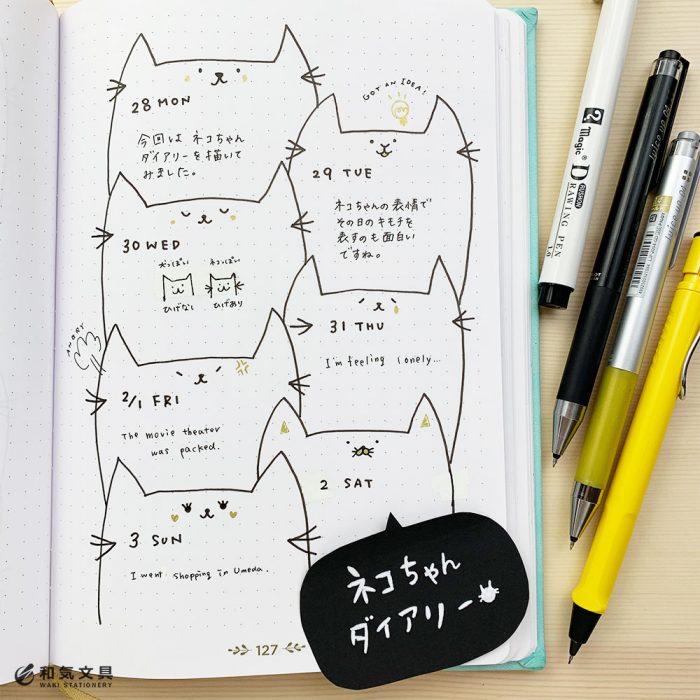 28 MON
今回は ネコちゃん
ダイアリーを描いて
みました。
GOT AN IDEA!
29 TUE
ネコちゃんの表情で
その日のキモチを
表すのも面白い
ですね。
30 WED
犬っぽい ネコっぽい
ひげなし ひげあり
31 THU
I'm feeling lonely...
ANGRY
2/1 FRI
The movie theater
was packed.
2 SAT
3 SUN
I went shopping in Umeda.
ネコちゃん
ダイアリー
127
和気文具
WAKI STATIONERY
Magic
DRAWING PEN
Juice up 04
Juice up 04